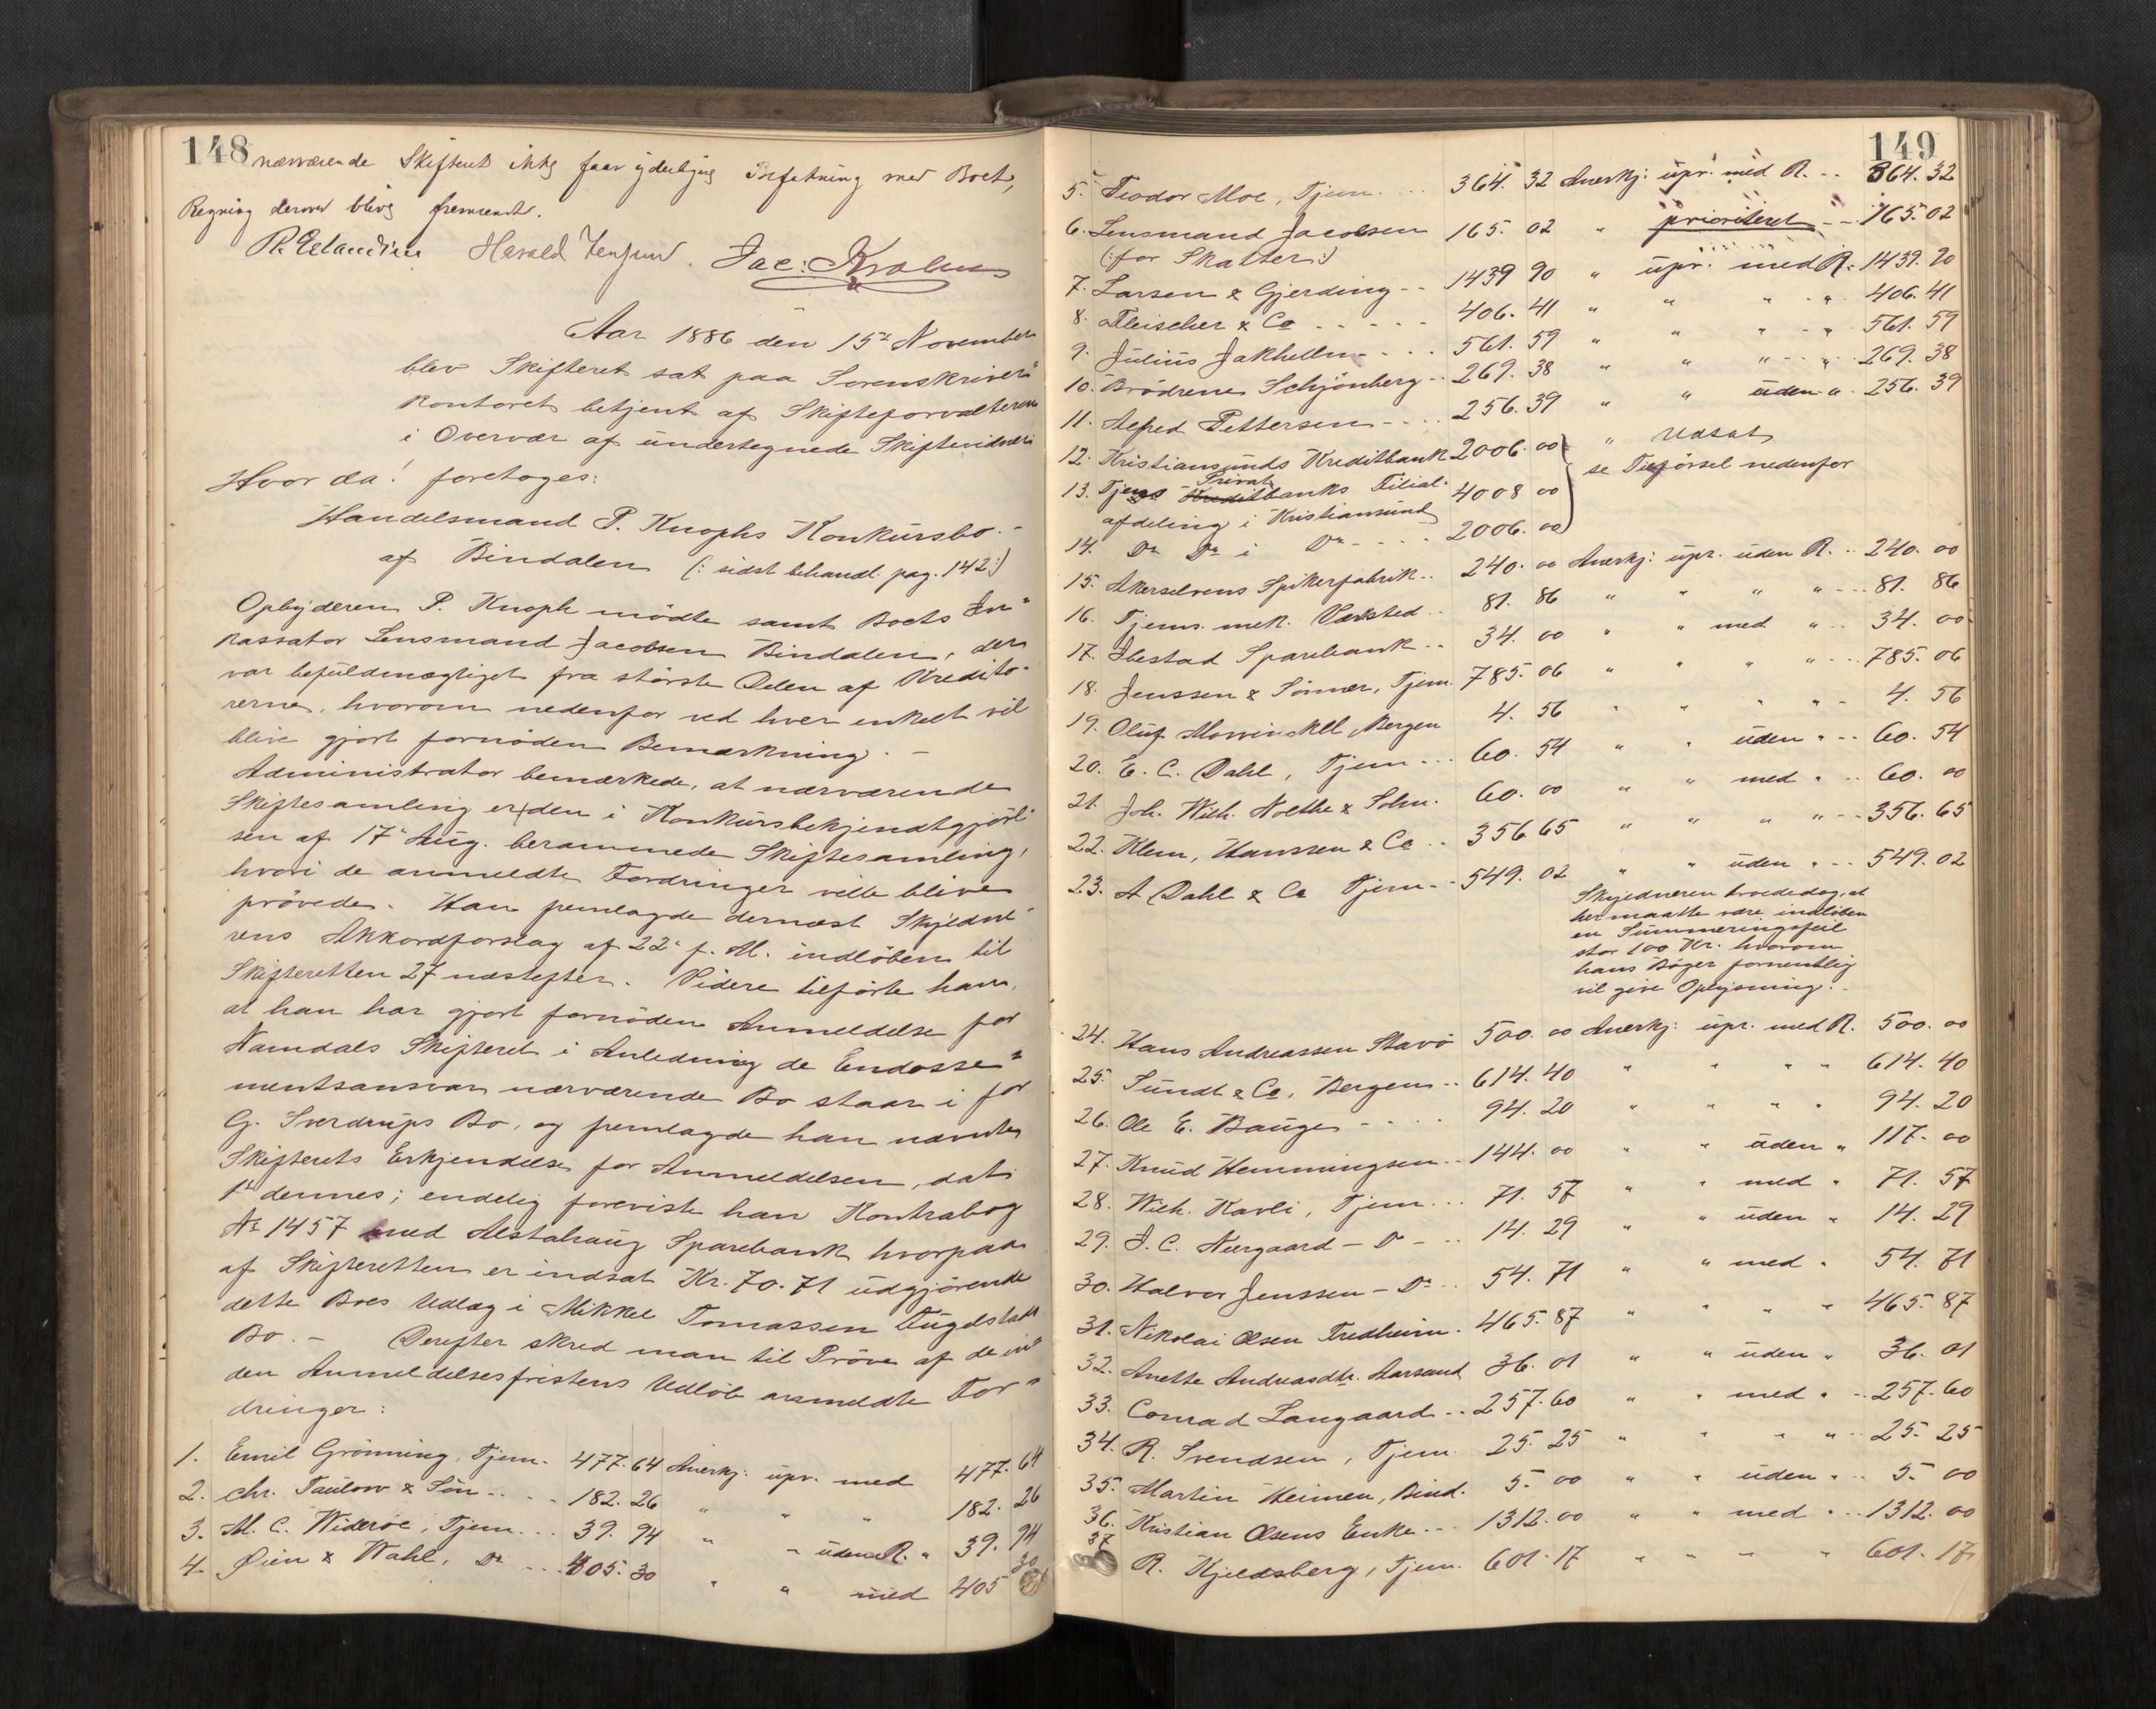 148 nærværende Skifteret ikke faar yderligere Befatning med Boet,
Regning derover blive fremsendt.
Harald Jensen. Jac: Krohn
Aar 1886 den 15de November
blev Skifteret sat paa Sorenskriver"
kontoret betjent af Skifteforvalteren
i Overvær af undertegnede Skiftevidner
Hvor da! foretoges:
Handelsmand P. Knophs Konkursbo.-
af Bindalen (: sidst behandl. pag. 142:)
Opbyderen P. Knoph mødte samt Boets In"
kassator Lensmand Jacobsen Bindalen, der
var befuldmægtiget fra største Delen af Kredito-
rerne, hvorom nedenfor ved hver enkelt vil
blive gjort fornøden Bemærkning. -
Administrator bemærkede, at nærværende
Skiftesamling er den i Konkursbekjendtgjørl-
sen af 17de Aug. berammede Skiftesamling,
hvori de anmeldte Fordringer ville blive
prøvede. Han fremlagde dernæst Skyldne-
rens Akkordforslag af 22de f. M. indløben til
Skifteretten 27 næstefter. Videre tilførte han,
at han har gjort fornøden Anmeldelse for
Namdals Skifteret i Anledning de Endosse"
mentsansvar nærværende Bo staar i for
G. Sverdrups Bo, og fremlagde han nævnte
Skifterets Erkjendelse for Anmeldelsen, dat.
1ste dennes; endelig foreviste han Kontrabog
No 1457 med Alstahaug Sparebank hvorpaa
af Skifteretten er indsat Kr. 70.71 udgjørende
dette Boes Udlæg i Mikkel Tomassen Fugelstads
Bo. - Derefter skred man til Prøve af de in"
den Anmeldelsesfristens Udløb anmeldte For"
dringer:
1. Emil Grønning, Tjem. 477. 64 Anerkj: upr. med 477. 64
2. Chr. Taulow & Søn .. 182. 26 " " " 182. 26
3. M. C. Widerøe, Tjem... 39. 94 " " uden R. " 39. 94
4. Øien & Wahl, Do ... 405. 30 " " med 405 30
149
5. Teodor Moe, Tjem. ... 364. 32 Anerkj: upr. med R. .. 364. 32
6. Lensmand Jacobsen 165. 02 " prioriteret -- 165. 02
(: for Skatter:)
7. Larsen & Gjerding -- 1439 90 " upr. med R. 1439. 90
8. Fleischer & Co ..... 406. 41 " " " " 406. 41
9. Julius Jakhelln .... 561. 59 " " " " 561. 59
10. Brødrene Schjønberg .. 269. 38 " " " " 269. 38
11. Alfred Pettersen .... 256. 39 " " uden " 256. 39
12. Kristiansunds Kreditbank 2006. 00 " Udsat
13. Tjems Kreditbanks Privat Filial- 4008 00 se Tilførsel nedenfor
afdeling i Kristiansund
14. Do Do i Do .... 2006. 00
15. Akerselvens Spikerfabrik .. 240. 00 Anerkj: upr. uden R. .. 240. 00
16. Tjems. mek. Værksted .. 81. 86 " " " " 81. 86
17. Ibestad Sparebank .. 34. 00 " " med " .. 34. 00
18. Jenssen & Sønner, Tjem. 785. 06 " " " " 785. 06
19. Oluf Mowinckel, Bergen 4. 56 " " " " 4. 56
20. E. C. Dahl, Tjem ... 60. 54 " " uden " 60. 54
21. Joh. Wilh. Nolthe & Sohn. 60. 00 " " med " .. 60. 00
22. Klem, Hanssen & Co .. 356 65 " " " " 356. 65
23. A Dahl & Co Tjem .. 549. 02 " " uden " .. 549. 02
Skyldneren troede dog, at
her maatte være indløben
en Summeringsfeil
stor 100 Kr. hvorom
hans Bøger formentlig
vil give Oplysning. -
24. Hans Andreassen Stavø 500. 00 Anerkj: upr. med R. 500. 00
25. Sundt & Co, Bergen .. 614. 40 " " " " 614. 40
26. Ole E. Bauge .... 94. 20 " " " " 94. 20
27. Knud Hemmingsen .. 144. 00 " " uden " 117. 00
28. Wilh. Kavli, Tjem ... 71. 57 " " med " 71. 57
29. J. C. Neergaard - Do - .. 14. 29 " " uden " 14. 29
30. Halvor Jenssen - Do .. 54. 71 " " med " 54. 71
31. Nikolai Olsen Fredheim. 465. 87 " " " " 465. 87
32. Anette Andreasdtr. Aarsand 36. 01 " " uden " 36. 01
33. Conrad Langaard .. 257. 60 " " med " .. 257. 60
34. R. Svendsen, Tjem. 25. 25 " " " " 25. 25
35. Martin Heimen, Bind. 5. 00 " " uden " .. 5. 00
36. Kristian Olsens Enke .. 1312. 00 " " med " .. 1312. 00
37 R. Kjeldsberg, Tjem. 601. 17 " " " " 601. 17